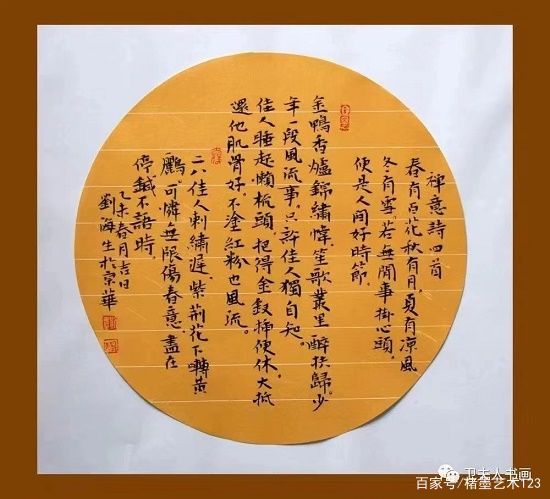 禪意詩四首
春有百花秋有月，夏有凉風
冬有雪。若無閒事掛心頭，
便是人间好時節。
金鴨香爐錦繡幃，笙歌叢里醉扶歸。少
年一段風流事，只許佳人獨自知。
佳人睡起懶梳頭，把得金釵插便休。大抵
還他肌骨好，不塗紅粉也風流。
二八佳人刺繡遲，紫荆花下囀黄
鸝，可憐無限傷春意，盡在
停鍼不語時。
乙未春月吉日
劉海生於京華
卫夫人书画
百家号/楮墨艺术123